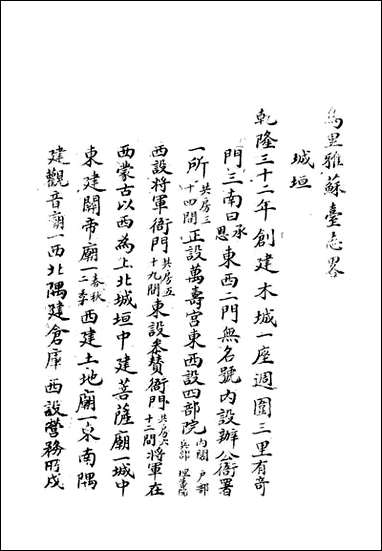 烏里雅蘇臺志畧
城垣
乾隆三十二年創建木城一座週圍三里有奇
門三南曰承恩東西二門無名號內設辦公衙署
一所共房三十四間正設萬壽宮東西設四部院內閣戶部兵部理藩院
西設將軍衙門共房五十九間東設叅贊衙門共房六十二間將軍在
西蒙古以西為上北城垣中建菩薩廟一城中
東建關帝廟一春秋二季西建土地廟一東南隅
建觀音廟一西北隅建倉庫西設營務所戍